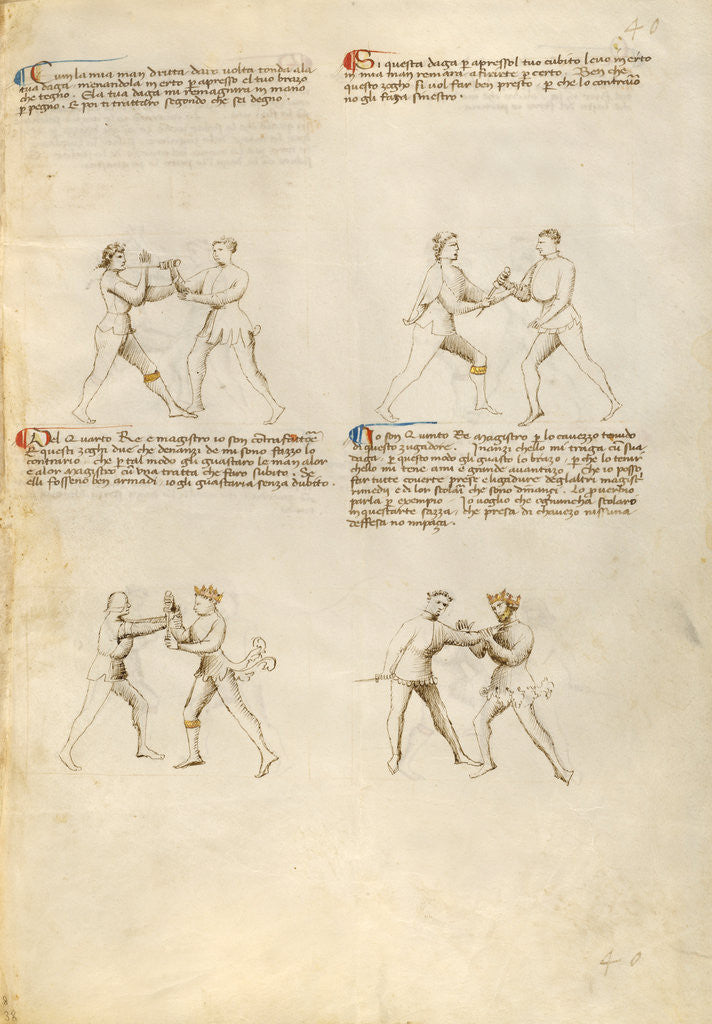 40
Cum la mia man dritta darò volta tonda ala
tua daga, menandola inverto per apresso el tuo brazo
che tegno. E la tua daga mi remagnirà in mano
per pegno. E poi ti trattarò segondo che sei degno.
Si questa daga per apresso l tuo cubito levo inverto
in mia man remarà a firirte per certo. Ben che
questo zogho si vol far ben presto, per che lo contrario
no gli faga sinestro.
Del Quarto Re e magistro io son contrafattore
E questi zoghi due che denanzi de mi sono fazzo lo
contrario, che per tal modo gli guastarò le man a lor
e a lor magistro cum una tratta che farò subito. Se
elli fosseno ben armadi io gli guastaria senza dubito.
Io son Quinto Re Magistro per lo cavezzo tenudo
di questo zugadore. Inanzi ch'ello mi traga cum sua
daga, per questo modo gli guasto lo brazo, per che lo tenir
ch'ello mi tene a mi è grande avantazo. Che io posso
far tutte coverte, prese e ligadure degl'altri magistri
rimedii e di lor scolari che sono dinanzi. Lo proverbio
parla per exempio. Io voglio che ognun che a scolaro
in quest'arte sazza, che presa di chavezo nissuna
deffesa no impaza.
40
8
38